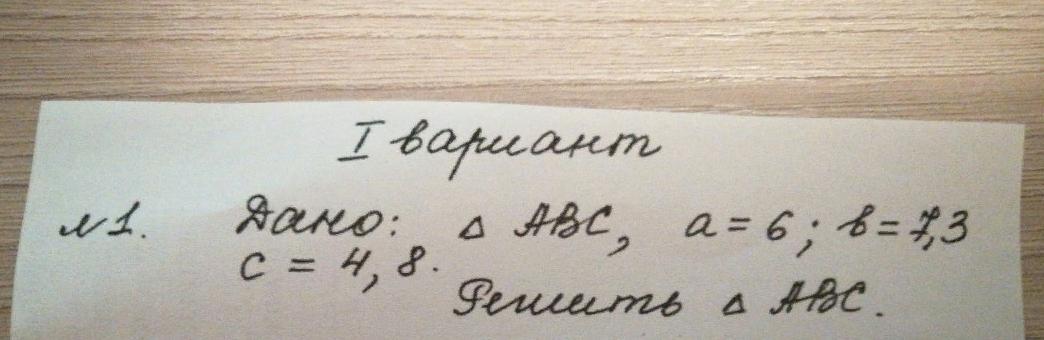 I вариант
№1. Дано: △ ABC, a = 6; b = 7,3
c = 4,8.
Решить △ ABC.